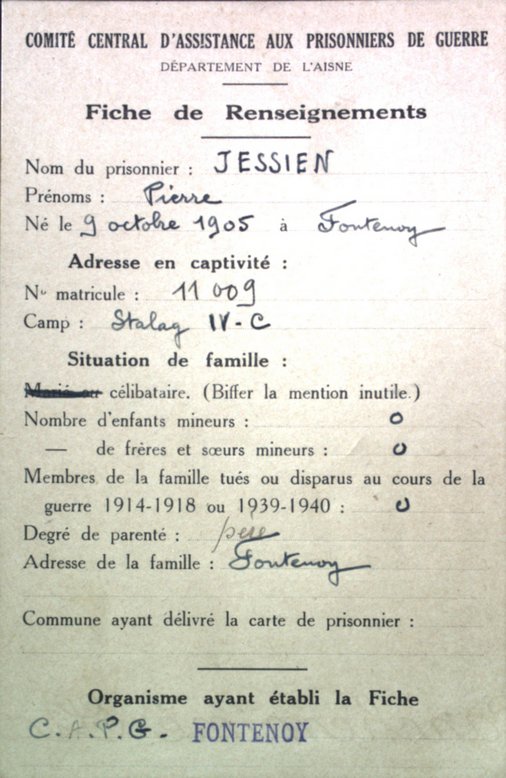 COMITÉ CENTRAL D'ASSISTANCE AUX PRISONNIERS DE GUERRE
DÉPARTEMENT DE L'AISNE
Fiche de Renseignements
Nom du prisonnier : JESSIEN
Prénoms : Pierre
Né le 9 octobre 1905 à Fontenoy
Adresse en captivité :
No matricule : 11 009
Camp : Stalag IV-C
Situation de famille :
Marié ou célibataire. (Biffer la mention inutile.)
Nombre d'enfants mineurs : 0
— de frères et sœurs mineurs : 0
Membres de la famille tués ou disparus au cours de la
guerre 1914-1918 ou 1939-1940 : 0
Degré de parenté : père
Adresse de la famille : Fontenoy
Commune ayant délivré la carte de prisonnier :
Organisme ayant établi la Fiche
C.A.P.G. FONTENOY